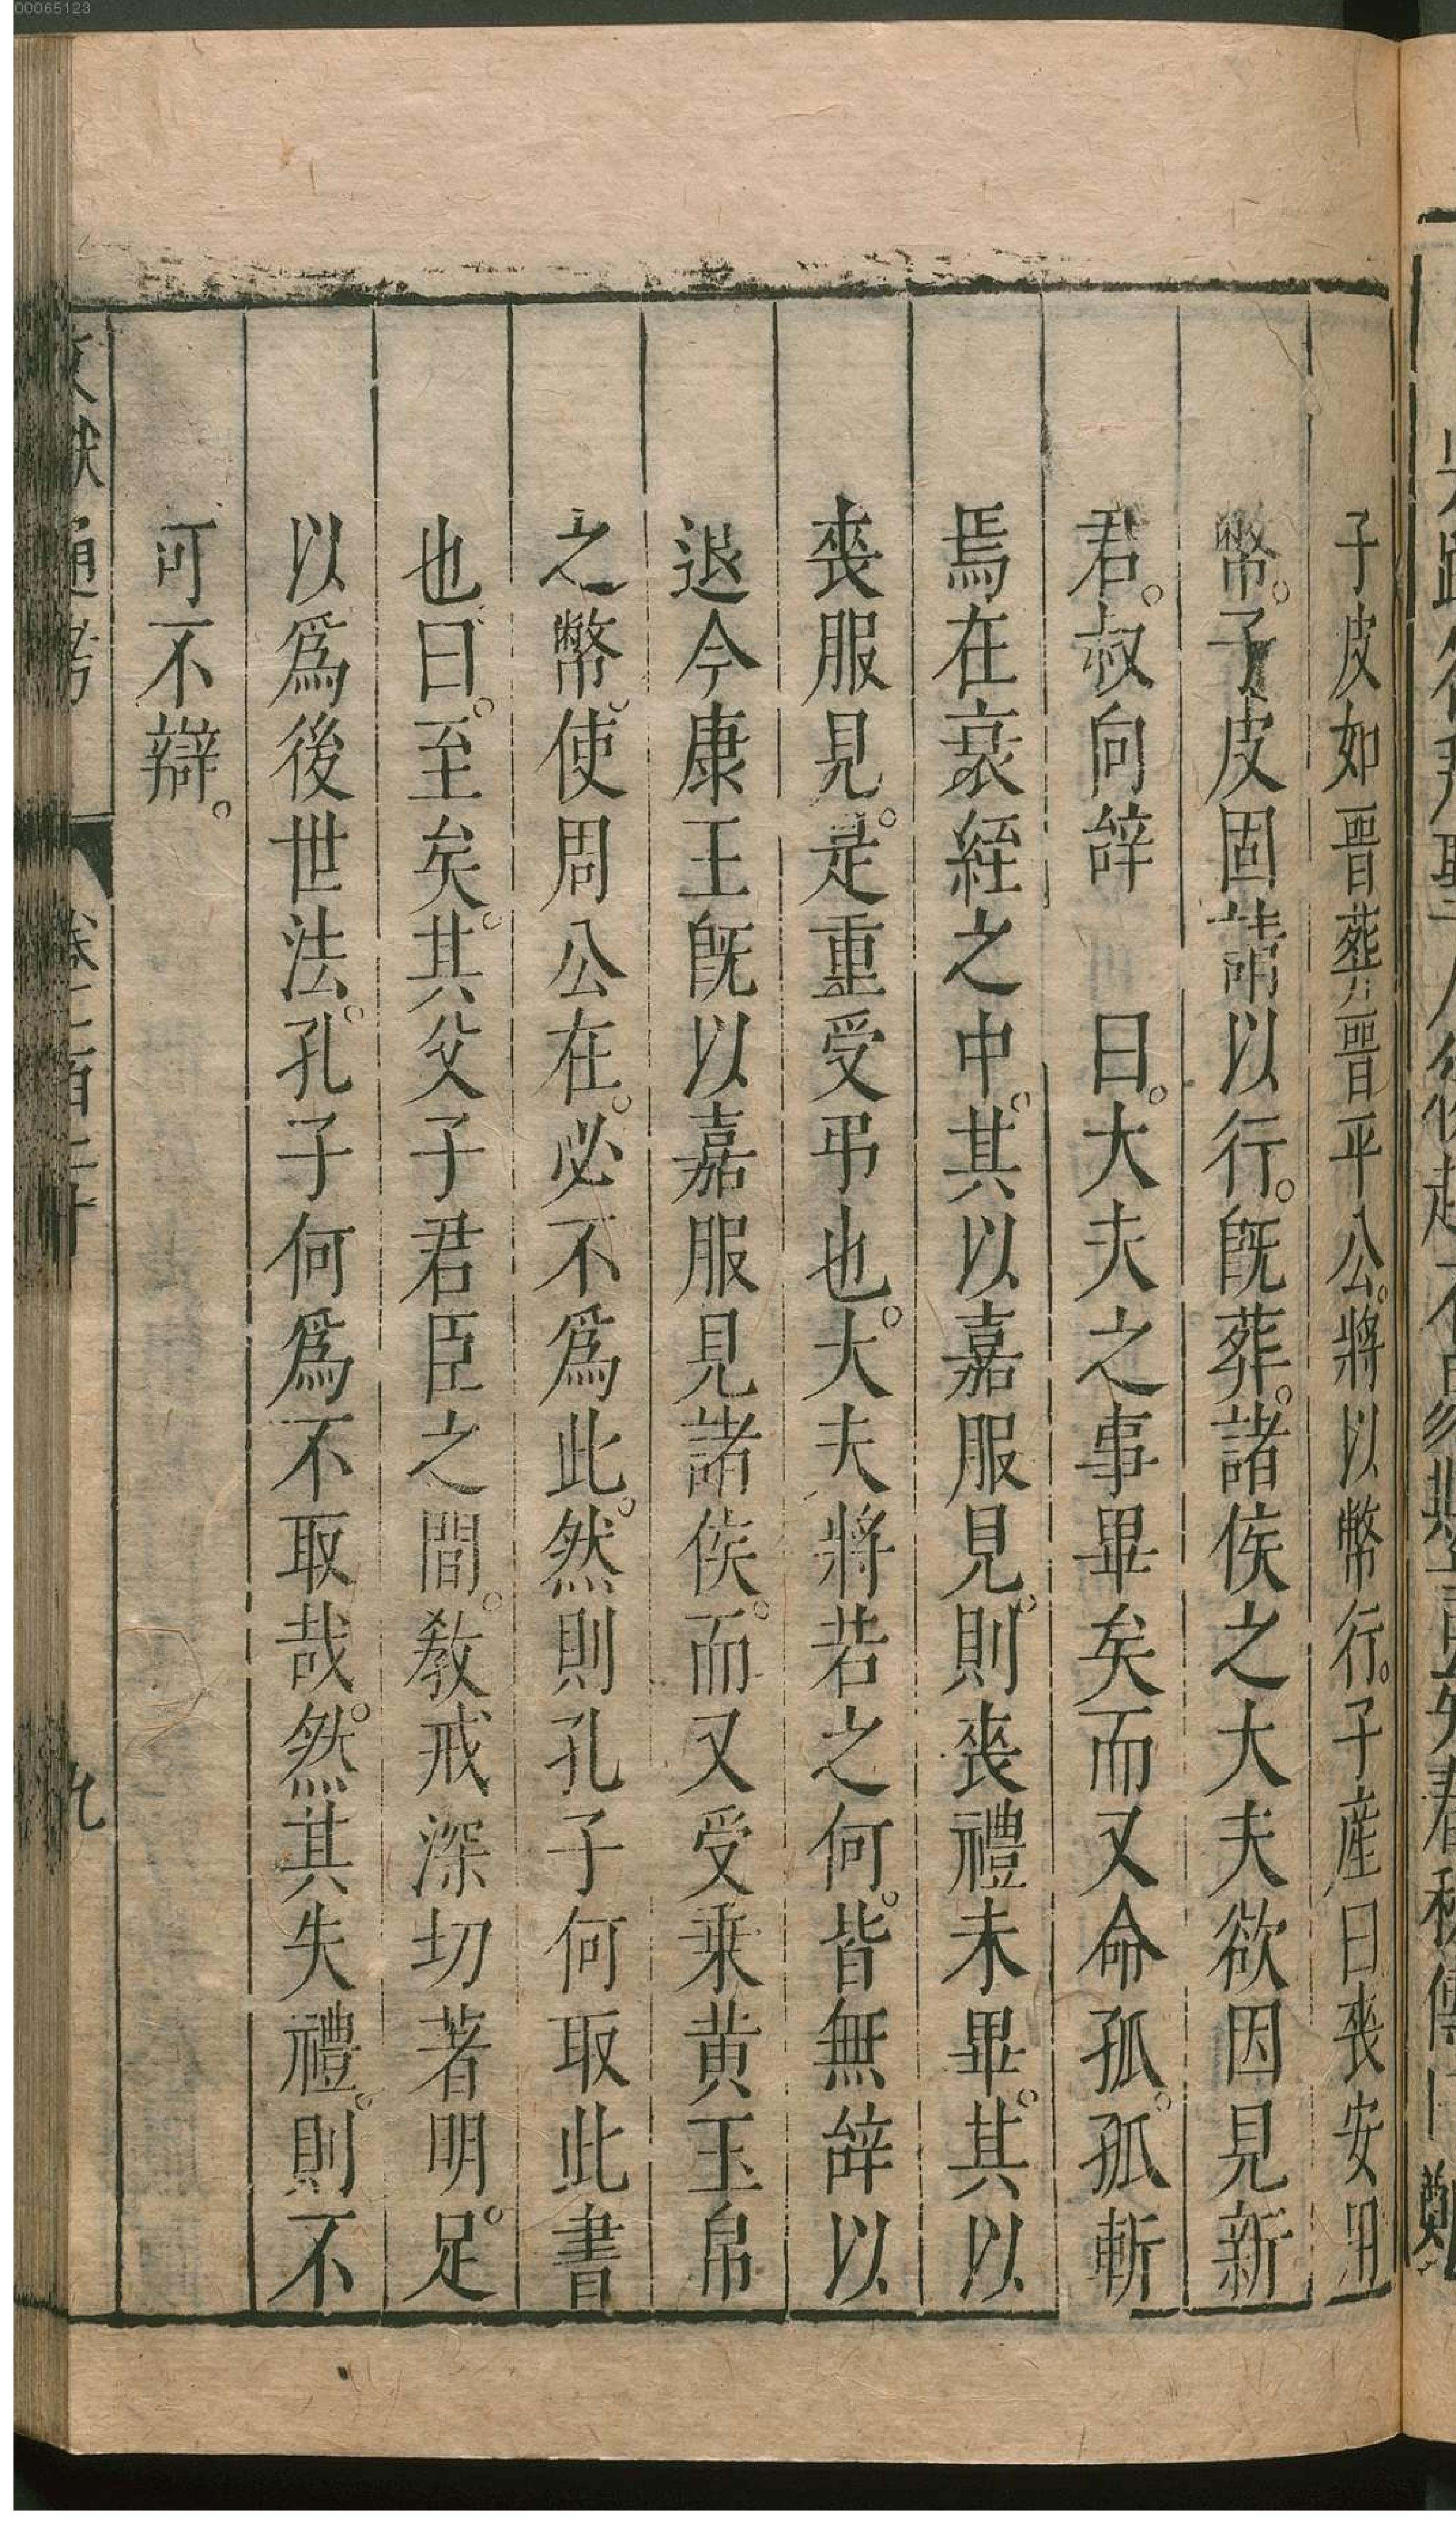 子皮如晉葬晉平公。將以幣行。子產曰喪安用
幣。子皮固請以行。既葬。諸侯之大夫欲因見新
君。叔向辭 曰。大夫之事畢矣而又命孤。孤斬
焉在衰絰之中。其以嘉服見。則喪禮未畢。其以
喪服見。是重受弔也。大夫將若之何。皆無辭以
退今康王既以嘉服見諸侯。而又受乗黄玉帛
之幣。使周公在。必不爲此。然則孔子何取此書
也曰。至矣。其父子君臣之間。敎戒深切著明。足
以爲後世法。孔子何爲不取哉。然其失禮。則不
可不辯。
文獻通考
九
00065123